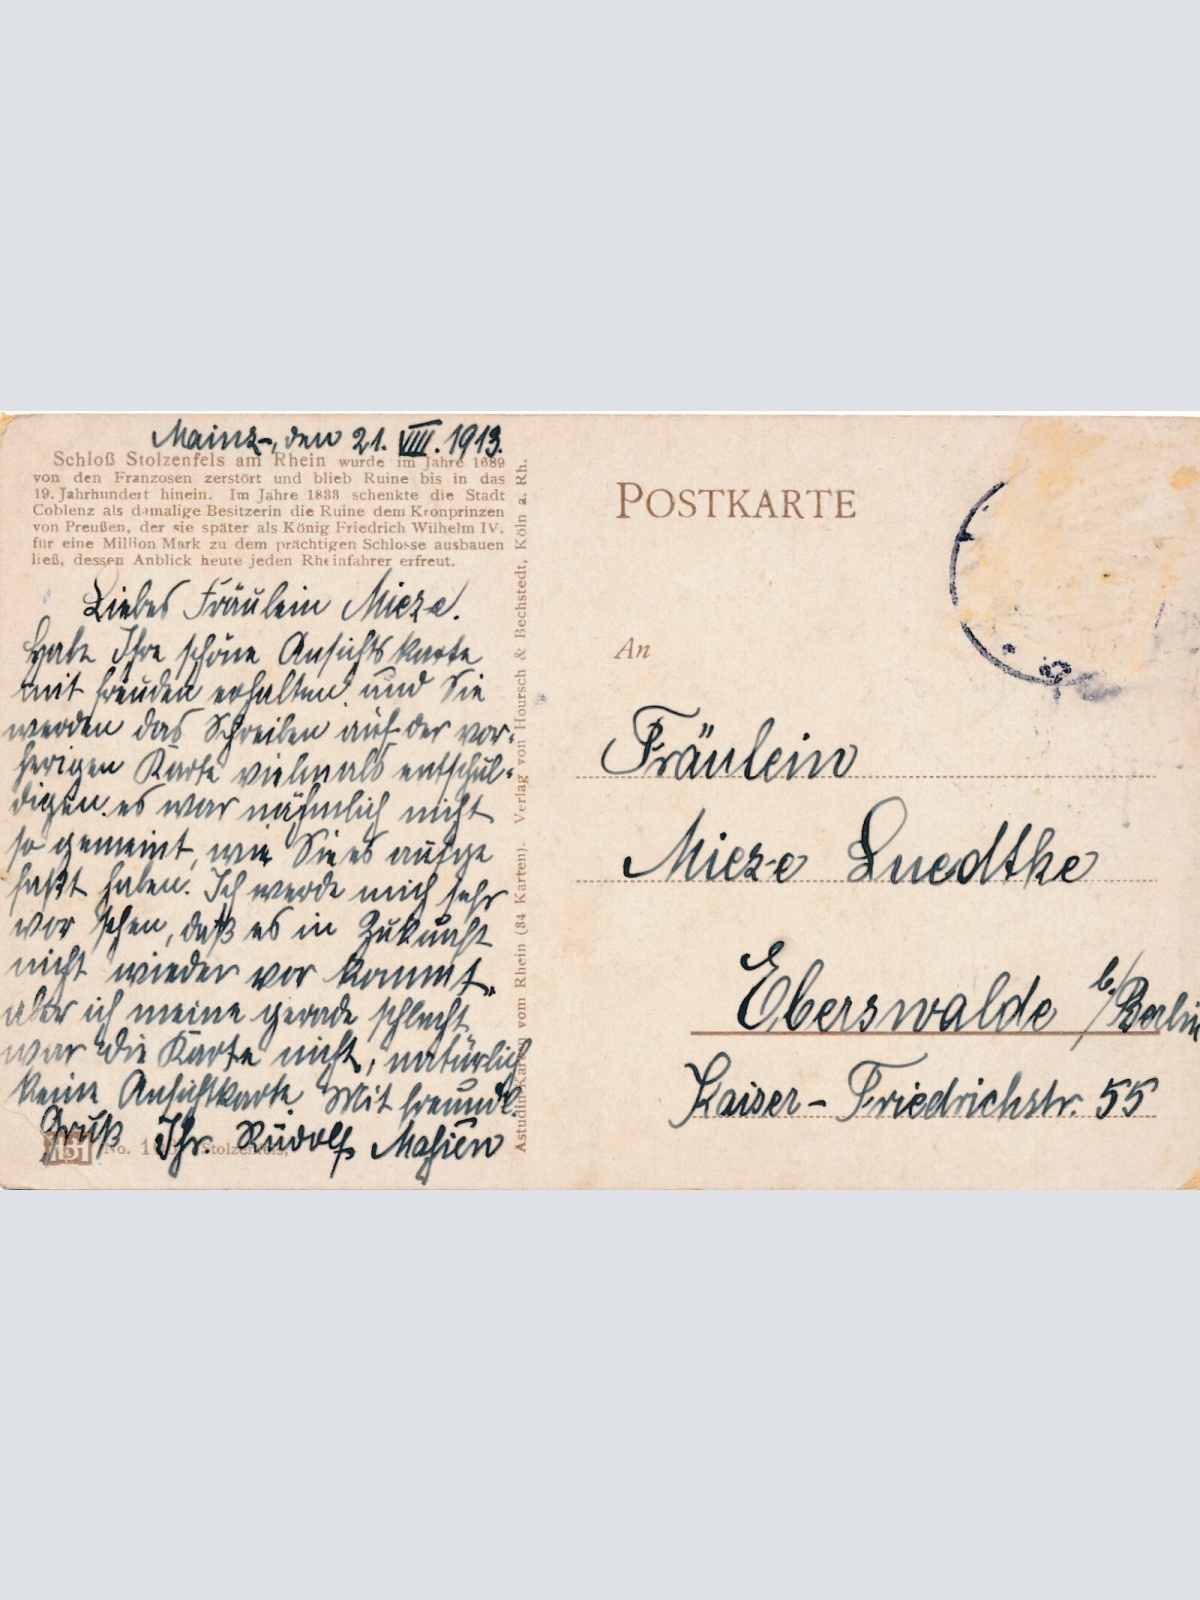 Mainz-, den 21. VIII. 1913.
Schloß Stolzenfels am Rhein wurde im Jahre 1689
von den Franzosen zerstört und blieb Ruine bis in das
19. Jahrhundert hinein. Im Jahre 1833 schenkte die Stadt
Coblenz als damalige Besitzerin die Ruine dem Kronprinzen
von Preußen, der sie später als König Friedrich Wilhelm IV.
für eine Million Mark zu dem prächtigen Schlosse ausbauen
ließ, dessen Anblick heute jeden Rheinfahrer erfreut.
Liebes Fräulein Mieze.
Habe Ihre schöne Ansichtskarte
mit freuden erhalten und Sie
werden das Schreiben auf der vor-
herigen Karte vielmals entschul-
digen. es war nähmlich nicht
so gemeint, wie Sie es aufge
faßt haben. Ich werde mich sehr
vor sehen, daß es in Zukunft
nicht wieder vor kommt.
aber ich meine gerade schlecht
war die Karte nicht, natürlich
keine Ansichtkarte. Mit freundl.
Gruß Ihr. Rudolf
No. Stolzenfels.
Astudin-Karten vom Rhein (34 Karten). Verlag von Hoursch & Bechstedt, Köln a. Rh.
POSTKARTE
An
Fräulein
Mieze Luedtke
Eberswalde b/Berlin
Kaiser-Friedrichstr. 55